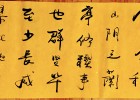 山陰之蘭
亭修禊事
也群賢畢
至少長咸